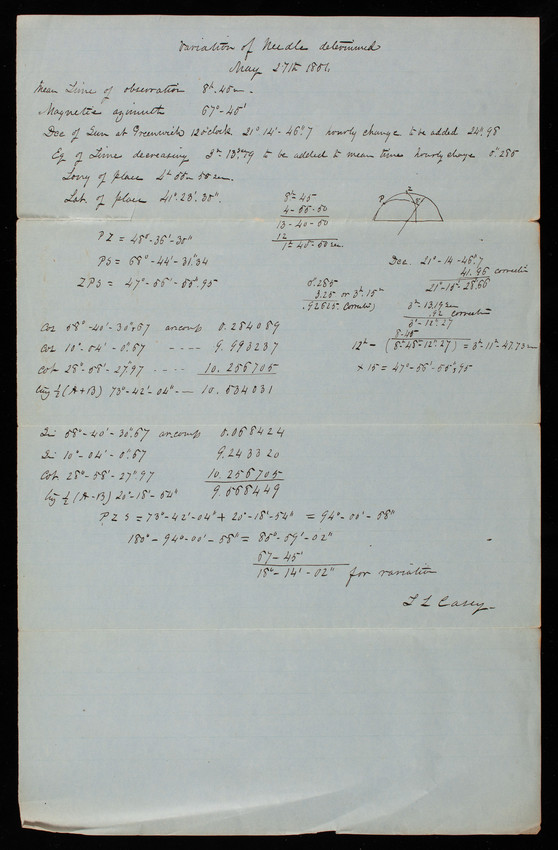 Variation of Needle determined
May 27th 1861.
Mean Time of observation 8h. 45m.
Magnetic azimuth 67°-45'
Dec of Sun at Greenwich 12 o'clock. 21° 14'- 46".7 hourly change to be added 24".98
Eq of Time decreasing 3m 13s.19 to be added to mean time hourly change 0s.285
Long of place 4h 55m 50 sec.
Lat. of place 41°. 23'. 30".
8h- 45
4-55-50
13-40-50
12
1h 40-50 sec
P Z S
PZ = 48°-36'-30"
PS = 68°-44'-31".34
ZPS = 47°-56'-55".95
0s.285
3.25 or 3h.15m
.92625 Correction
Dec. 21°-14-46".7
41.96 correction
21°-15'-28.66
3m-13.19 sec
.92 correction
3m-12.27
8-45
12h- (8h-48m-12s.27) = 3h-11m-47.73 sec
x 15 = 47°-56'-55",95
Cos 58°-40'-30".67 ar. comp 0.284089
Cos 10°-04'-0".67 - - - - 9.993237
Cot 28°-58'-27".97 - - - - 10.256705
tang ½ (A+B) 73°-42'-04" - - 10.534031
Sin 58°-40'-30".67 ar. comp 0.068424
Sin 10°-04'-0".67 9.243320
Cot 28°-58'-27".97 10.256705
tang ½ (A-B) 20°-18'-54" 9.568449
PZS = 73°-42'-04" + 20°-18'-54" = 94°-00'-58"
180°-94°-00'-58" = 85°-59'-02"
67-45'
18°-14'-02" for variation
T L Casey